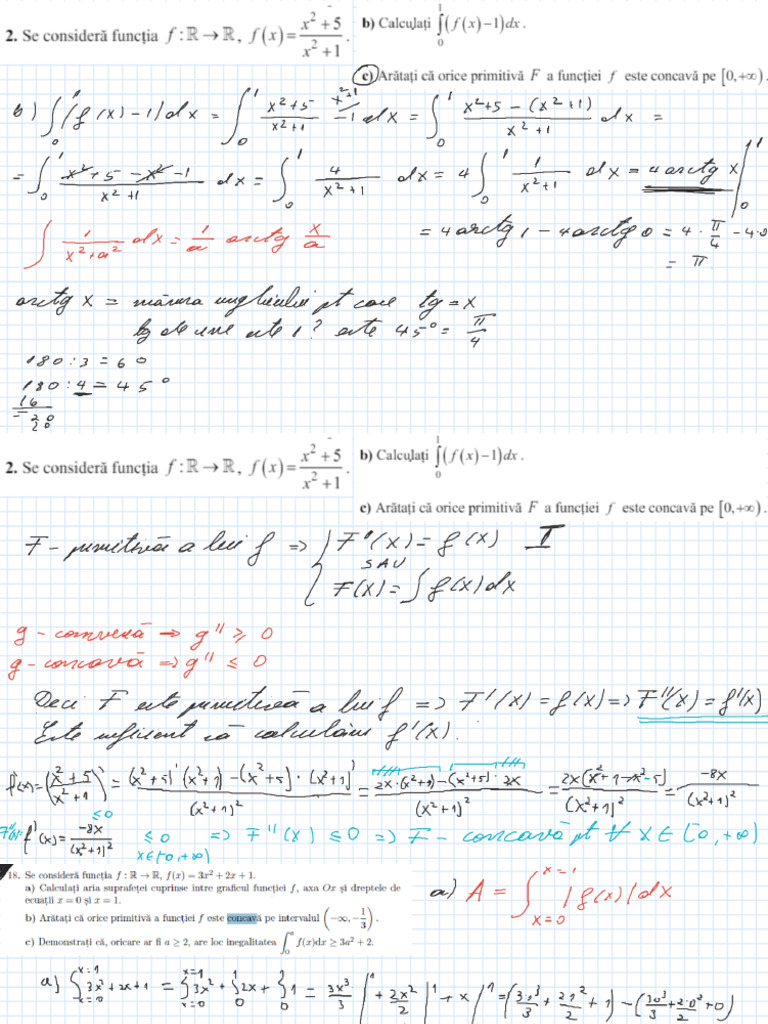 2. Se consideră funcția f : ℝ → ℝ, f(x) = (x² + 5)/(x² + 1). b) Calculați ∫₀¹ (f(x) − 1)dx.
c) Arătați că orice primitivă F a funcției f este concavă pe [0, +∞).
b) ∫₀¹ (f(x) − 1)dx = ∫₀¹ (x²+5)/(x²+1) − 1 dx = ∫₀¹ (x²+5 − (x²+1))/(x²+1) dx =
= ∫₀¹ (x²+5−x²−1)/(x²+1) dx = ∫₀¹ 4/(x²+1) dx = 4 ∫₀¹ 1/(x²+1) dx = 4 arctg x |₀¹
∫ 1/(x²+a²) dx = 1/a arctg x/a
= 4 arctg 1 − 4 arctg 0 = 4 · π/4 − 4·0
= π
arctg x = măsura unghiului pt care tg = x
tg de une este 1? este 45° = π/4
180 : 3 = 60
180 : 4 = 45°
16
= 20
20
2. Se consideră funcția f : ℝ → ℝ, f(x) = (x² + 5)/(x² + 1). b) Calculați ∫₀¹ (f(x) − 1)dx.
c) Arătați că orice primitivă F a funcției f este concavă pe [0, +∞).
F − primitivă a lui f => { F'(x) = f(x) I
SAU
F(x) = ∫ f(x)dx
g − convexă → g'' ≥ 0
g − concavă => g'' ≤ 0
Deci F este primitivă a lui f => F'(x) = f(x) => F''(x) = f'(x)
Este suficient să calculăm f'(x).
f'(x) = ((x²+5)/(x²+1))' = ((x²+5)'(x²+1) − (x²+5)·(x²+1)')/(x²+1)² = (2x·(x²+1) − (x²+5)·2x)/(x²+1)² = 2x(x²+1−x²−5)/(x²+1)² = −8x/(x²+1)²
F''(x) = f'(x) = −8x/(x²+1)² ≤ 0 => F''(x) ≤ 0 => F − concavă pt ∀ x ∈ [0, +∞)
≤ 0
x∈[0, +∞)
18. Se consideră funcția f : ℝ → ℝ, f(x) = 3x² + 2x + 1.
a) Calculați aria suprafeței cuprinse între graficul funcției f, axa Ox și dreptele de
ecuații x = 0 și x = 1.
b) Arătați că orice primitivă a funcției f este concavă pe intervalul (−∞, −1/3).
c) Demonstrați că, oricare ar fi a ≥ 2, are loc inegalitatea ∫₀ᵃ f(x)dx ≥ 3a² + 2.
a) A = ∫ₓ₌₀ˣ⁼¹ |f(x)|dx
a) ∫ₓ₌₀ˣ⁼¹ 3x² + 2x + 1 = ∫ₓ₌₀ˣ⁼¹ 3x² + ∫₀¹ 2x + ∫₀¹ 1 = 3x³/3 |¹ + 2x²/2 |¹ + x |¹ = (3·1³/3 + 2·1²/2 + 1) − (3·0³/3 + 2·0²/2 + 0)